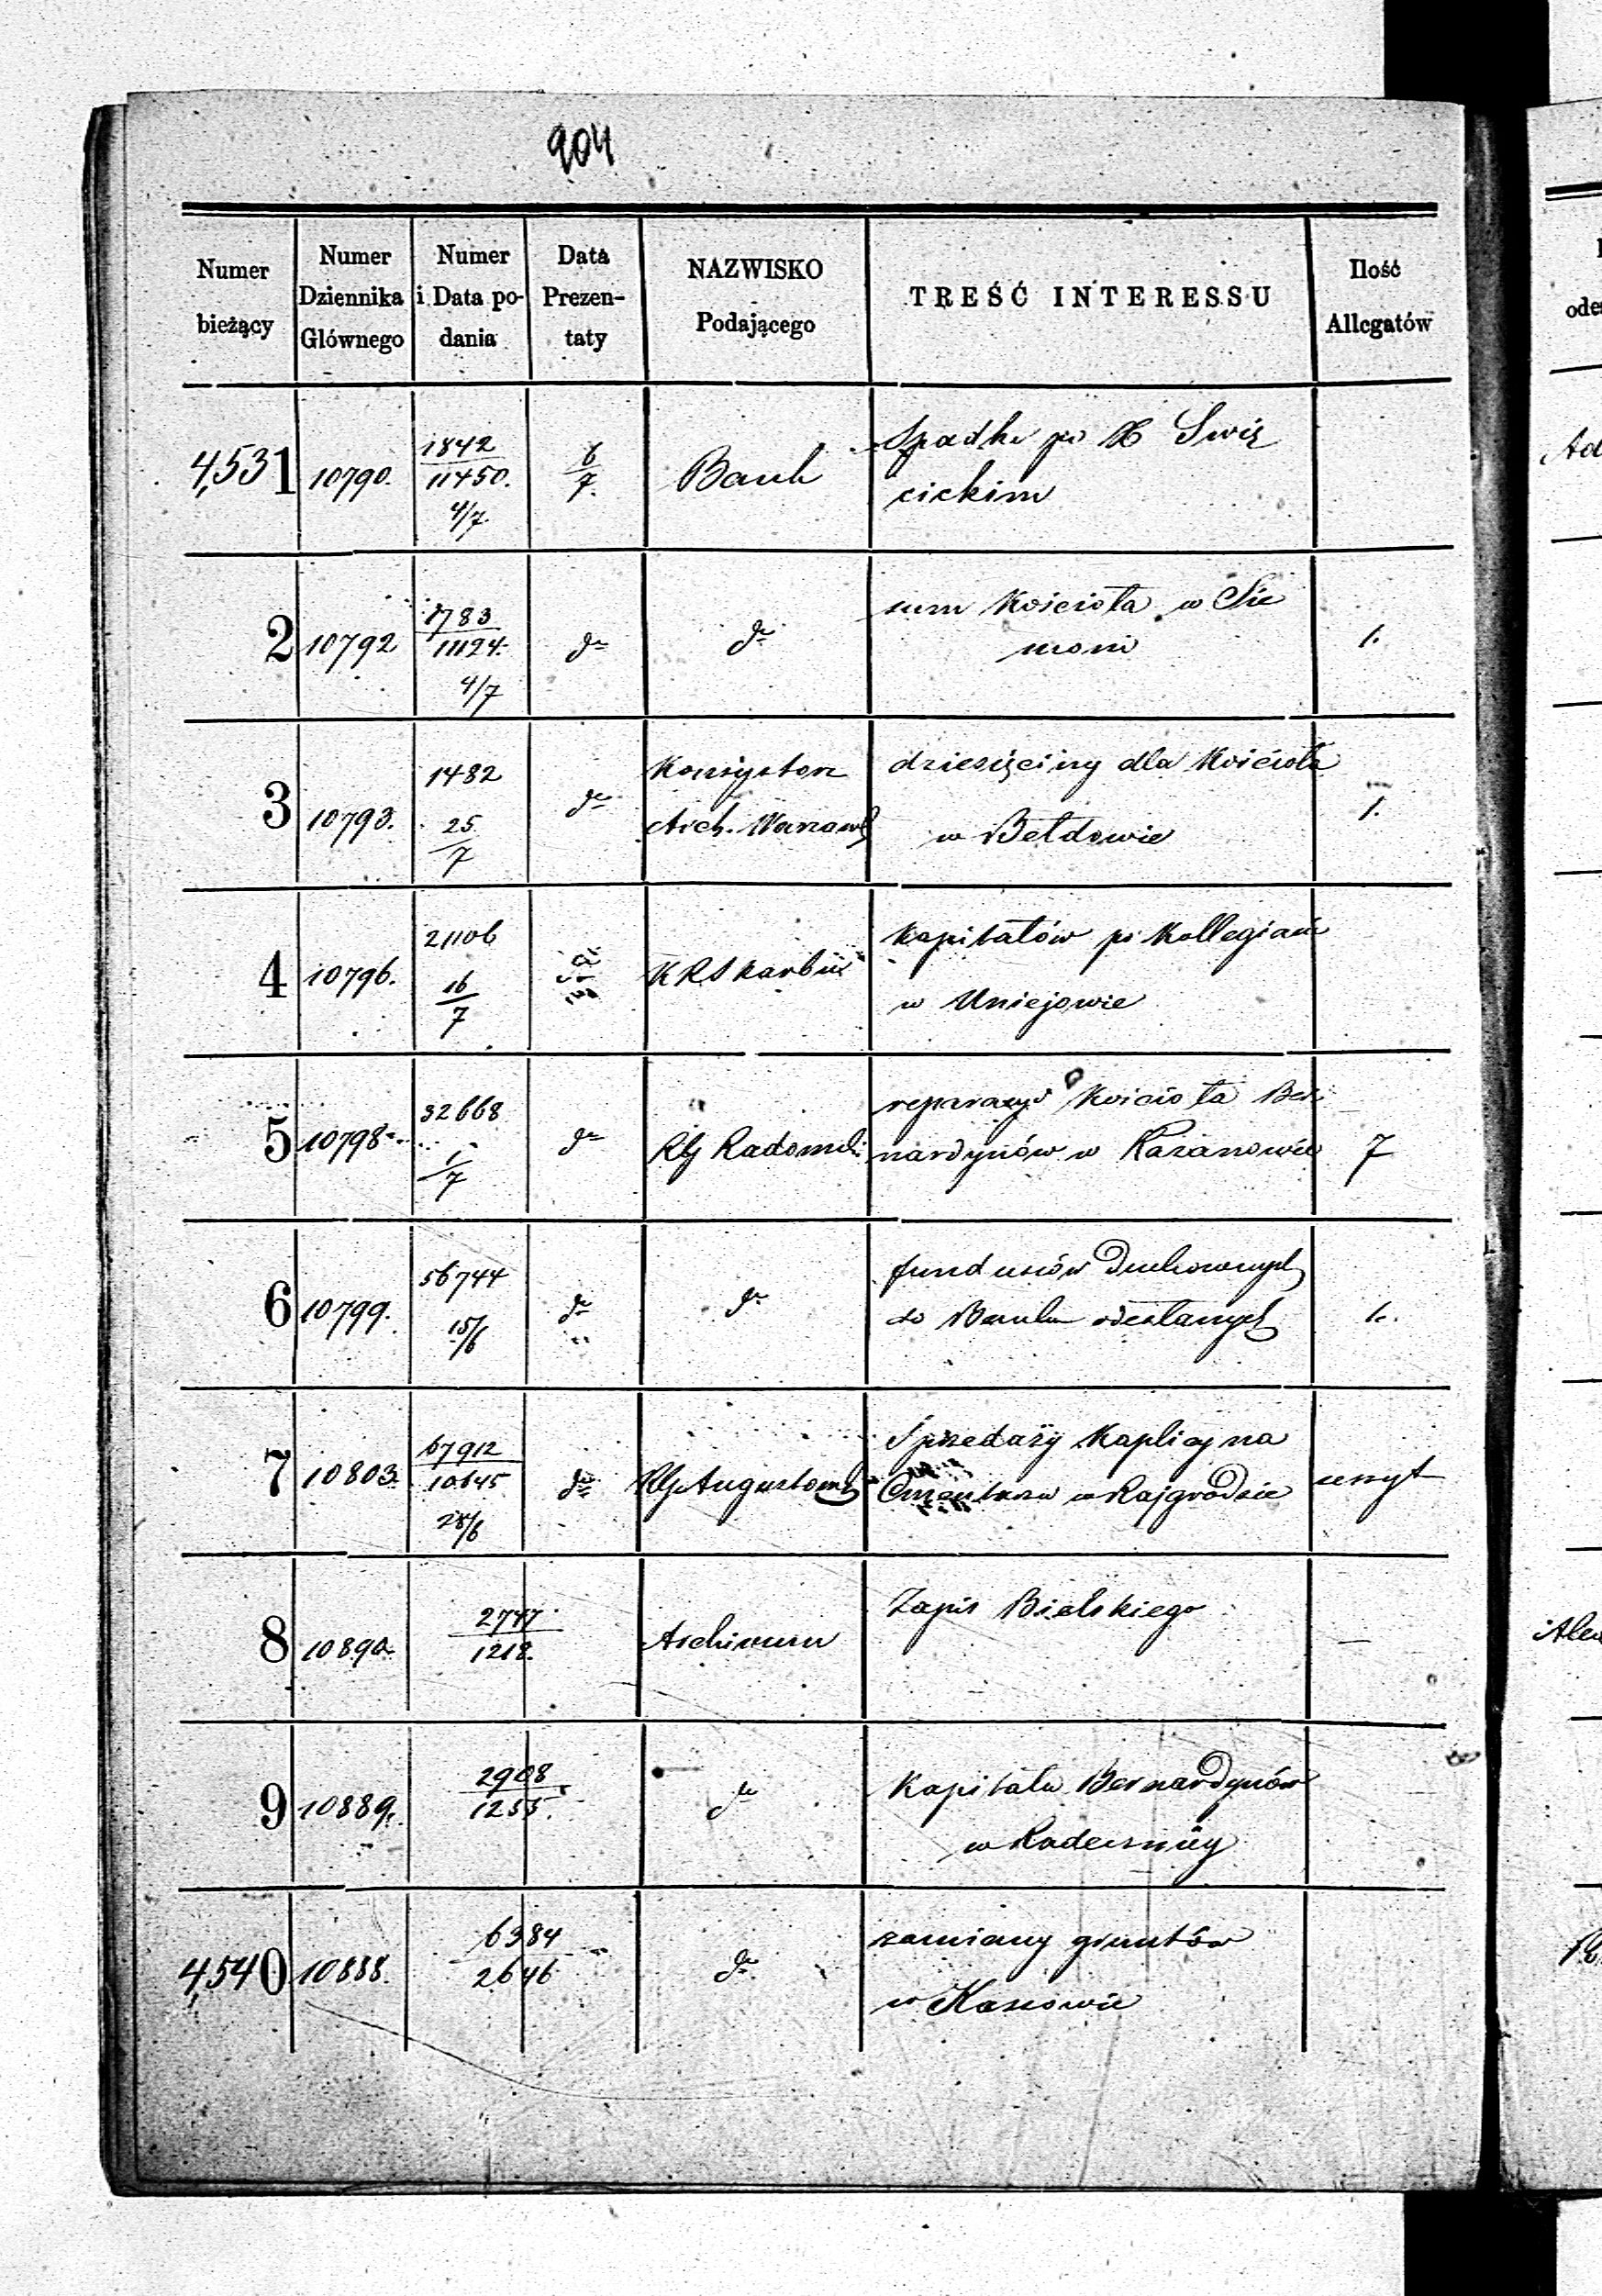 904
Numer bieżący
Numer Dziennika Głównego
Numer i Data podania
Data Prezentaty
NAZWISKO Podającego
TREŚĆ INTERESSU
Ilość Allegatów
4,531 10790. 1842/11450. 4/7. 6/7. Bank Spadku po X Świę
cickim
2 10792 1783/11124. 4/7 do do sum Kościoła w Sie
moni 1.
3 10793. 1482 25/7 do Konsystorz dziesięciny dla Kościoła
Arch. Warszaws w Bełdowie 1.
4 10796. 21106 16/7 KRSkarbu kapitałów po Kollegiacie
w Uniejowie
5 10798 32668 1/7 do RG Radoms reparacyi Kościoła Ber
nardynów w Kazanowie 7
6 10799. 56744 15/6 do do funduszów Duchownych
do Banku odesłanych 1.
7 10803. 67912/10645 28/6 do RG Augustows Sprzedaży Kaplicy na
Cmentarzu w Rajgrodzie uszyt
8 10890. 2747/1218. Archiwum Zapis Bielskiego —
9 10889. 2908/1255. do Kapitału Bernardynów
w Radecznicy
4,540 10888. 6384/2646 do zamiany gruntów
w